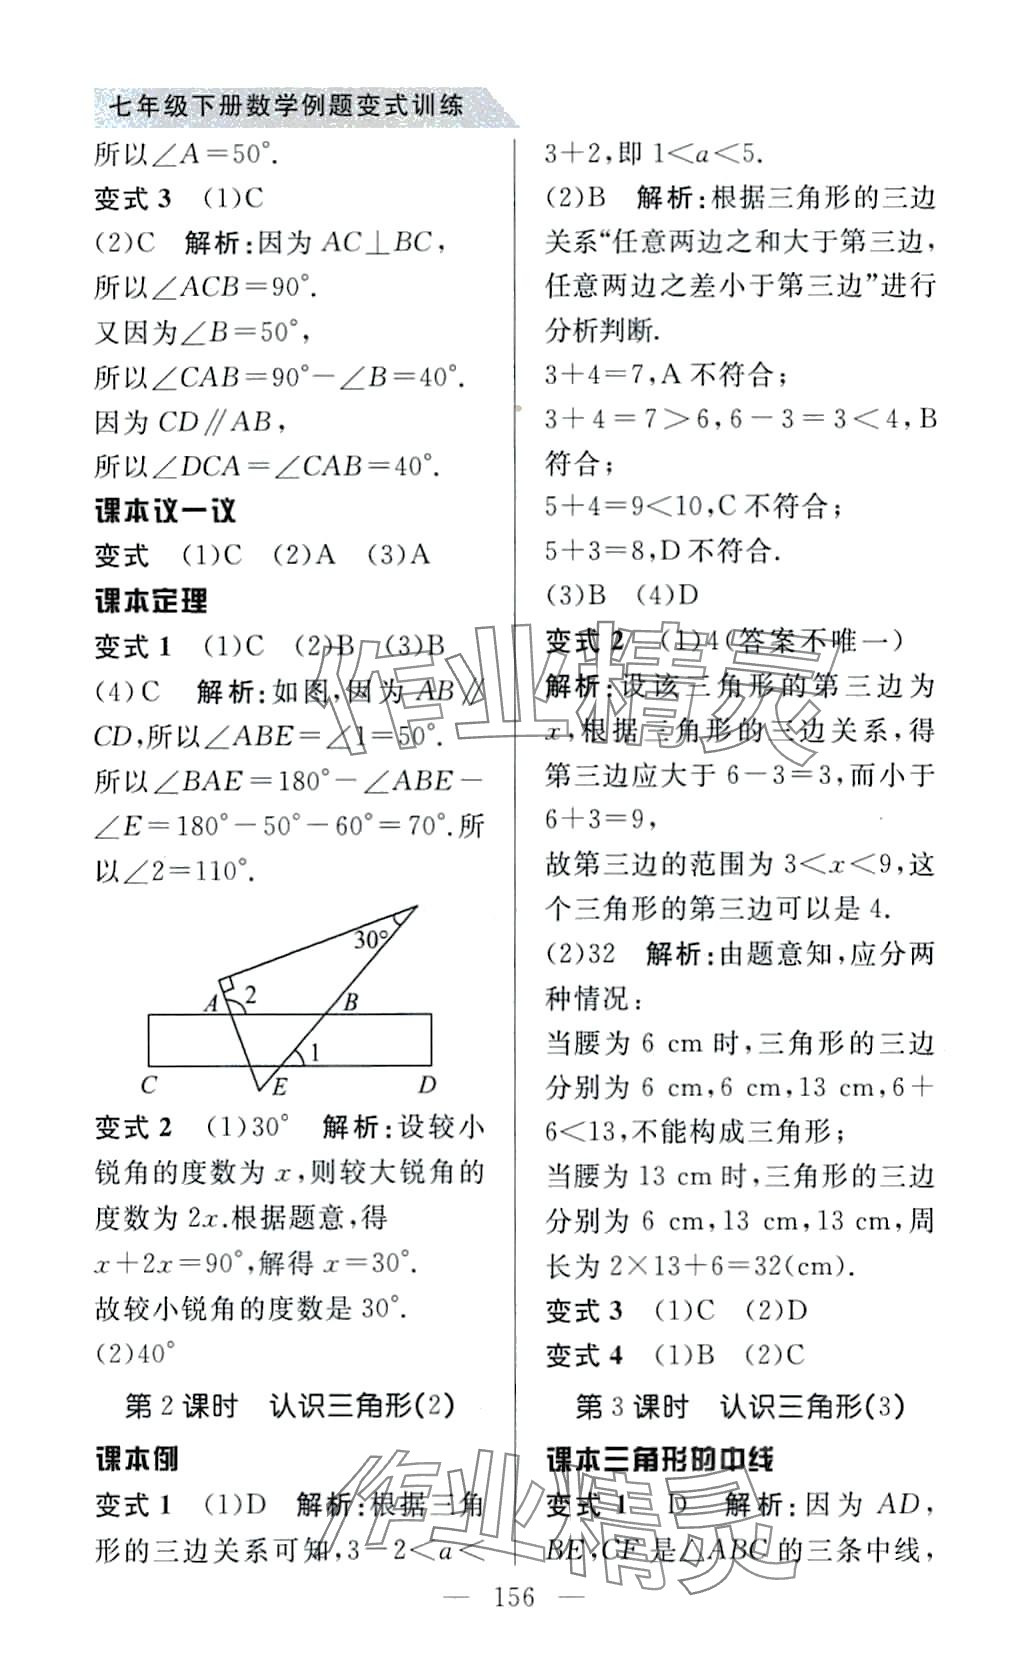 七年级下册数学例题变式训练
所以∠A=50°.
变式 3 (1)C
(2)C 解析:因为 AC⊥BC,
所以∠ACB=90°.
又因为∠B=50°,
所以∠CAB=90°-∠B=40°.
因为 CD∥AB,
所以∠DCA=∠CAB=40°.
课本议一议
变式 (1)C (2)A (3)A
课本定理
变式 1 (1)C (2)B (3)B
(4)C 解析:如图,因为 AB∥
CD,所以∠ABE=∠1=50°.
所以∠BAE=180°-∠ABE-
∠E=180°-50°-60°=70°.所
以∠2=110°.
30°
A
2
B
1
C
E
D
变式 2 (1)30° 解析:设较小
锐角的度数为 x,则较大锐角的
度数为 2x.根据题意,得
x+2x=90°,解得 x=30°.
故较小锐角的度数是 30°.
(2)40°
第 2 课时 认识三角形(2)
课本例
变式 1 (1)D 解析:根据三角
形的三边关系可知,3-2<a<
3+2,即 1<a<5.
(2)B 解析:根据三角形的三边
关系“任意两边之和大于第三边,
任意两边之差小于第三边”进行
分析判断.
3+4=7,A 不符合;
3+4=7>6,6-3=3<4,B
符合;
5+4=9<10,C 不符合;
5+3=8,D 不符合.
(3)B (4)D
变式 2 (1)4(答案不唯一)
解析:设该三角形的第三边为
x,根据三角形的三边关系,得
第三边应大于 6-3=3,而小于
6+3=9,
故第三边的范围为 3<x<9,这
个三角形的第三边可以是 4.
(2)32 解析:由题意知,应分两
种情况:
当腰为 6 cm 时,三角形的三边
分别为 6 cm,6 cm,13 cm,6+
6<13,不能构成三角形;
当腰为 13 cm 时,三角形的三边
分别为 6 cm,13 cm,13 cm,周
长为 2×13+6=32(cm).
变式 3 (1)C (2)D
变式 4 (1)B (2)C
第 3 课时 认识三角形(3)
课本三角形的中线
变式 1 D 解析:因为 AD,
BE,CF 是△ABC 的三条中线,
— 156 —
作业精灵
作业精灵